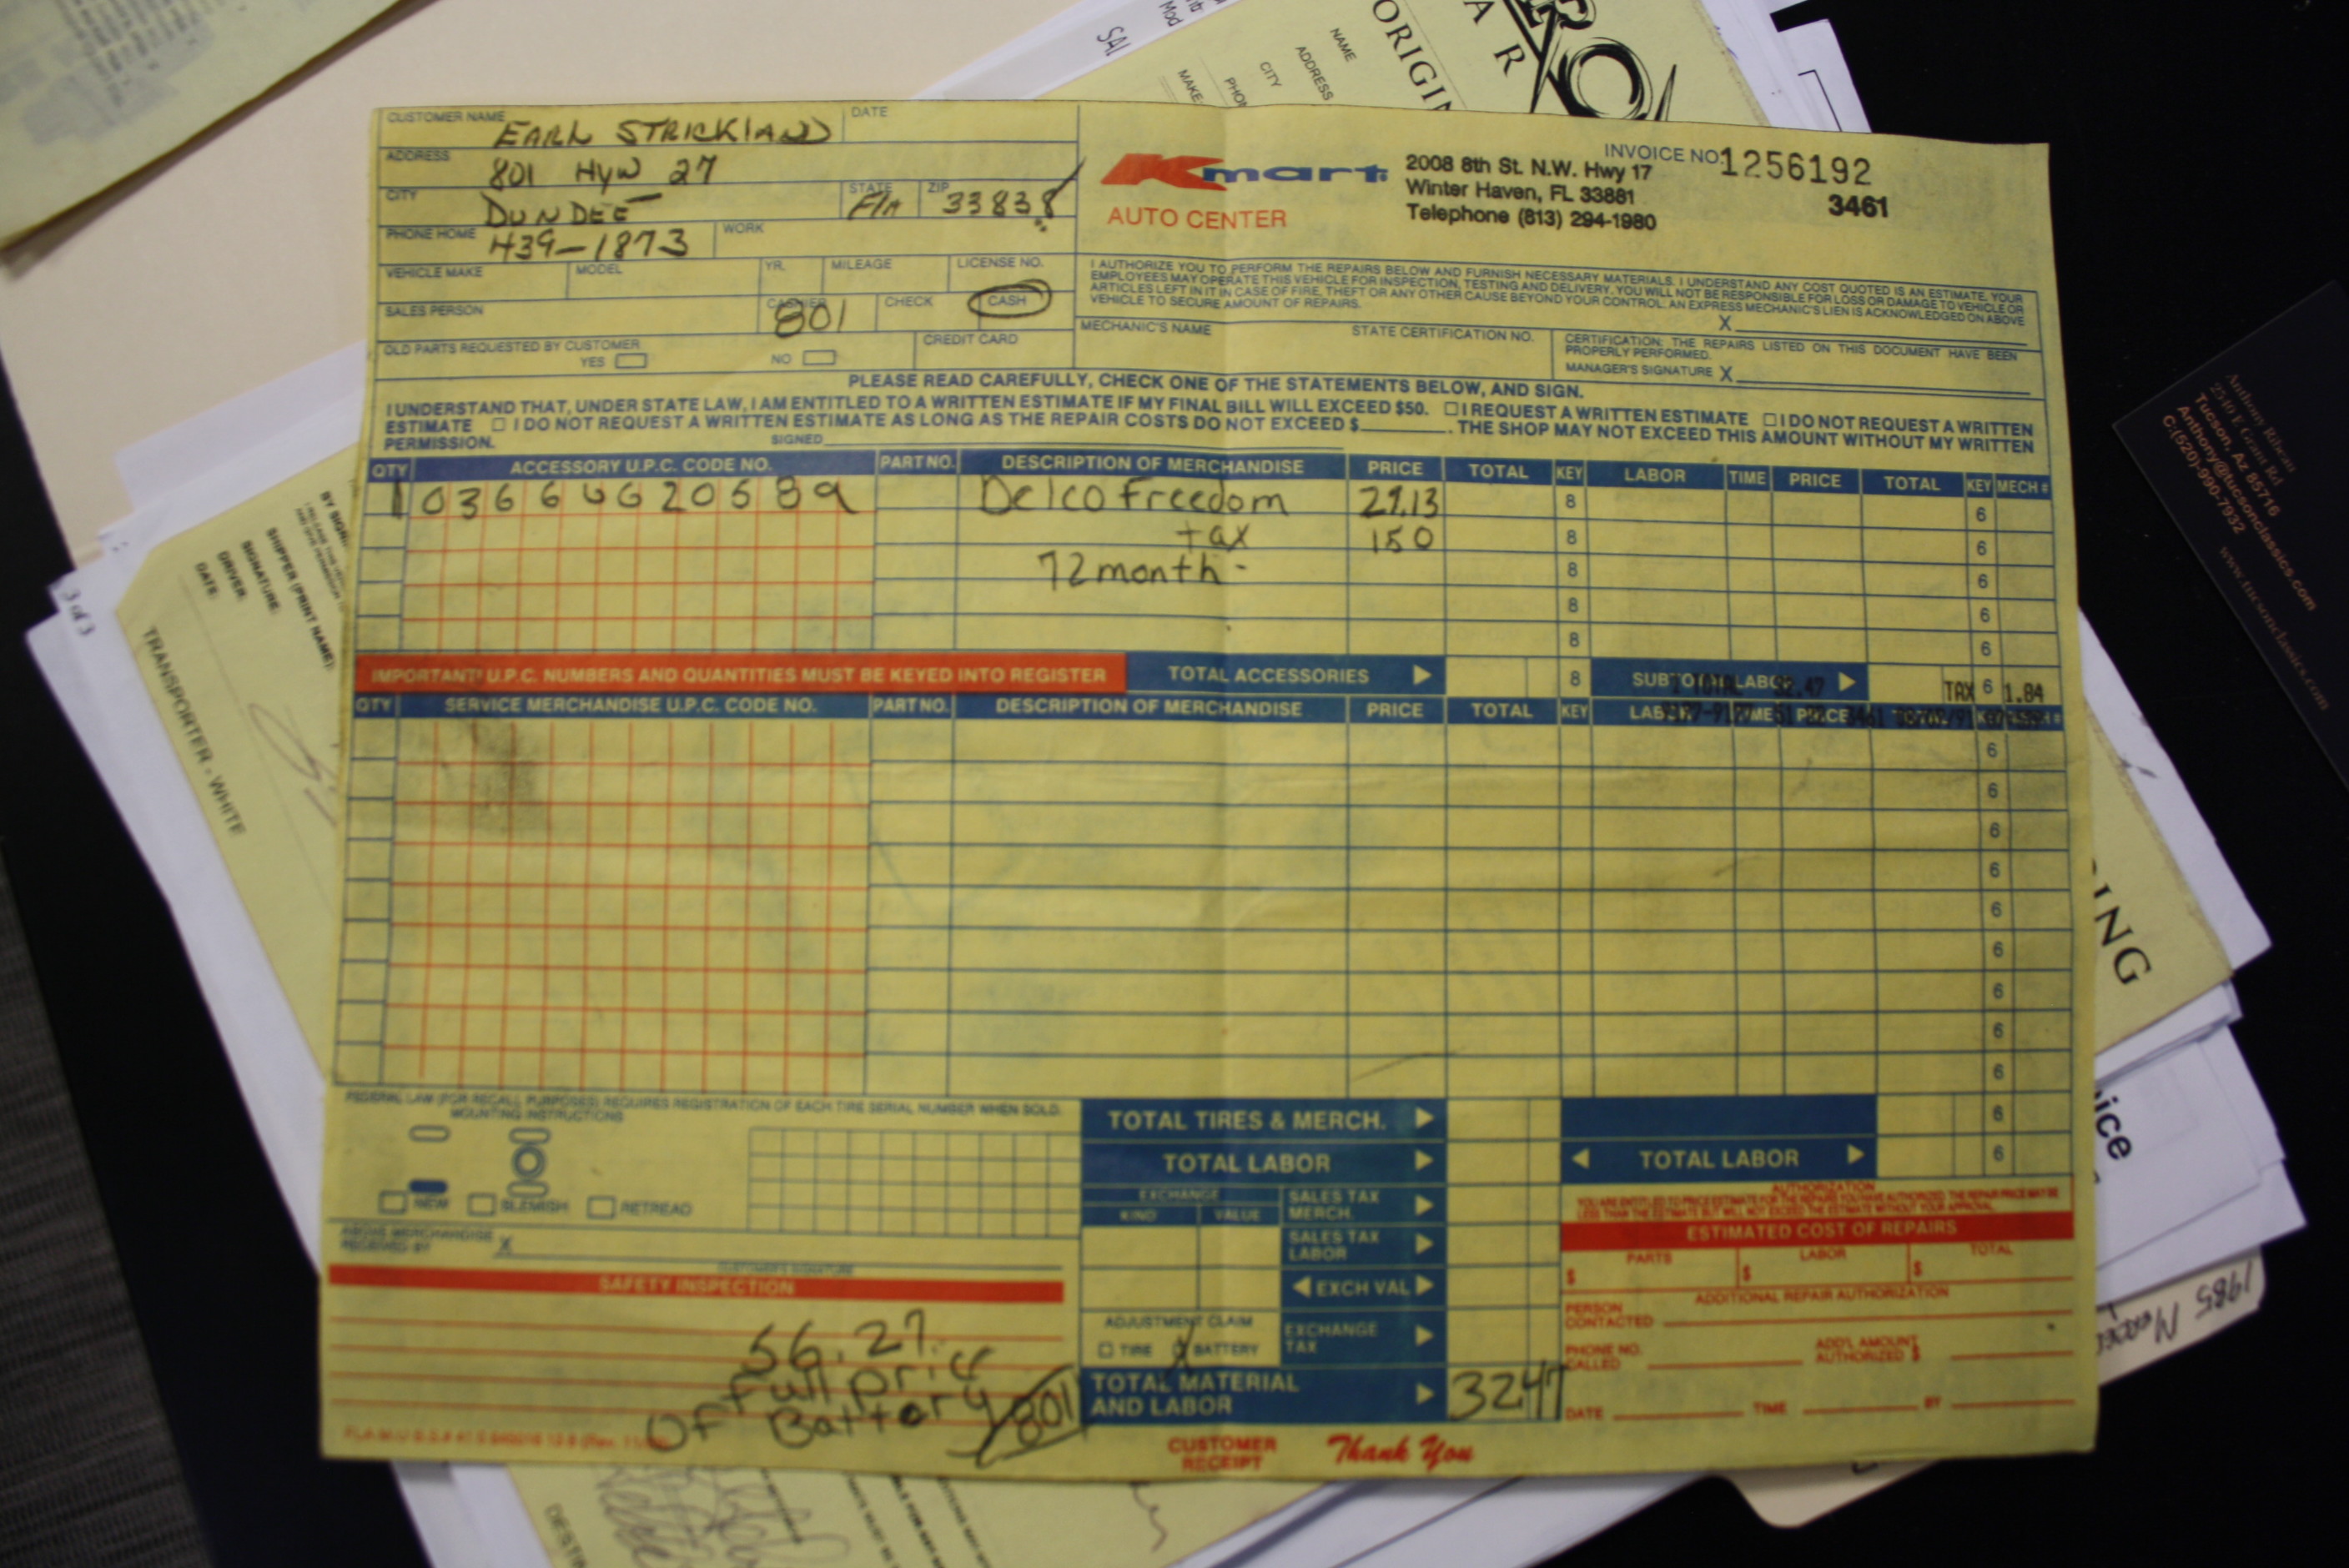 CUSTOMER NAME EARL STRICKLAND DATE
ADDRESS 801 HYW 27
CITY DUNDEE STATE FlA ZIP 33838
PHONE HOME 439-1873 WORK
VEHICLE MAKE MODEL YR. MILEAGE LICENSE NO.
SALES PERSON CASHIER 801 CHECK CASH
OLD PARTS REQUESTED BY CUSTOMER YES NO CREDIT CARD
Kmart
AUTO CENTER
2008 8th St. N.W. Hwy 17
Winter Haven, FL 33881
Telephone (813) 294-1980
INVOICE NO. 1256192
3461
I AUTHORIZE YOU TO PERFORM THE REPAIRS BELOW AND FURNISH NECESSARY MATERIALS. I UNDERSTAND ANY COST QUOTED IS AN ESTIMATE. YOUR
EMPLOYEES MAY OPERATE THIS VEHICLE FOR INSPECTION, TESTING AND DELIVERY. YOU WILL NOT BE RESPONSIBLE FOR LOSS OR DAMAGE TO VEHICLE OR
ARTICLES LEFT IN IT IN CASE OF FIRE, THEFT OR ANY OTHER CAUSE BEYOND YOUR CONTROL. AN EXPRESS MECHANIC'S LIEN IS ACKNOWLEDGED ON ABOVE
VEHICLE TO SECURE AMOUNT OF REPAIRS. X
MECHANIC'S NAME STATE CERTIFICATION NO.
CERTIFICATION: THE REPAIRS LISTED ON THIS DOCUMENT HAVE BEEN
PROPERLY PERFORMED.
MANAGER'S SIGNATURE X
PLEASE READ CAREFULLY, CHECK ONE OF THE STATEMENTS BELOW, AND SIGN.
I UNDERSTAND THAT, UNDER STATE LAW, I AM ENTITLED TO A WRITTEN ESTIMATE IF MY FINAL BILL WILL EXCEED $50. I REQUEST A WRITTEN ESTIMATE I DO NOT REQUEST A WRITTEN
ESTIMATE I DO NOT REQUEST A WRITTEN ESTIMATE AS LONG AS THE REPAIR COSTS DO NOT EXCEED $ . THE SHOP MAY NOT EXCEED THIS AMOUNT WITHOUT MY WRITTEN
PERMISSION. SIGNED
QTY ACCESSORY U.P.C. CODE NO. PART NO. DESCRIPTION OF MERCHANDISE PRICE TOTAL KEY LABOR TIME PRICE TOTAL KEY MECH #
1 036666620589 Delco Freedom 29.13 8 6
tax 150 8 6
72 month - 8 6
8 6
8 6
IMPORTANT! U.P.C. NUMBERS AND QUANTITIES MUST BE KEYED INTO REGISTER TOTAL ACCESSORIES 8 SUBTOTAL LABOR 32.47 TAX 6 1.84
QTY SERVICE MERCHANDISE U.P.C. CODE NO. PART NO. DESCRIPTION OF MERCHANDISE PRICE TOTAL KEY LABOR TIME PRICE
6
6
6
6
6
6
6
6
6
FEDERAL LAW (FOR RECALL PURPOSES) REQUIRES REGISTRATION OF EACH TIRE SERIAL NUMBER WHEN SOLD.
MOUNTING INSTRUCTIONS
NEW BLEMISH RETREAD
ABOVE MERCHANDISE
RECEIVED BY X
CUSTOMER'S SIGNATURE
SAFETY INSPECTION
56.27
Full price
Of Battery 801
TOTAL TIRES & MERCH. 6
TOTAL LABOR TOTAL LABOR 6
EXCHANGE
KIND VALUE
SALES TAX
MERCH.
SALES TAX
LABOR
EXCH VAL
ADJUSTMENT CLAIM
TIRE X BATTERY
EXCHANGE
TAX
TOTAL MATERIAL
AND LABOR 3247
AUTHORIZATION
ESTIMATED COST OF REPAIRS
PARTS LABOR TOTAL
$ $ $
ADDITIONAL REPAIR AUTHORIZATION
PERSON
CONTACTED
PHONE NO.
CALLED
ADD'L AMOUNT
AUTHORIZED $
DATE TIME BY
CUSTOMER
RECEIPT
Thank You
ORIGI
NAME
ADDRESS
CITY
PHON
MAKE
SAL
Mod
3 of 3
DATE:
DRIVER
SIGNATURE:
SHIPPER (PRINT NAME):
BY SIGN
TRANSPORTER - WHITE
ING
ice
1985
DESTIN
Tucson, Az 85716
Anthony@tucsonclassics.com
C:(520)-990-7932
www.tucsonclassics.com